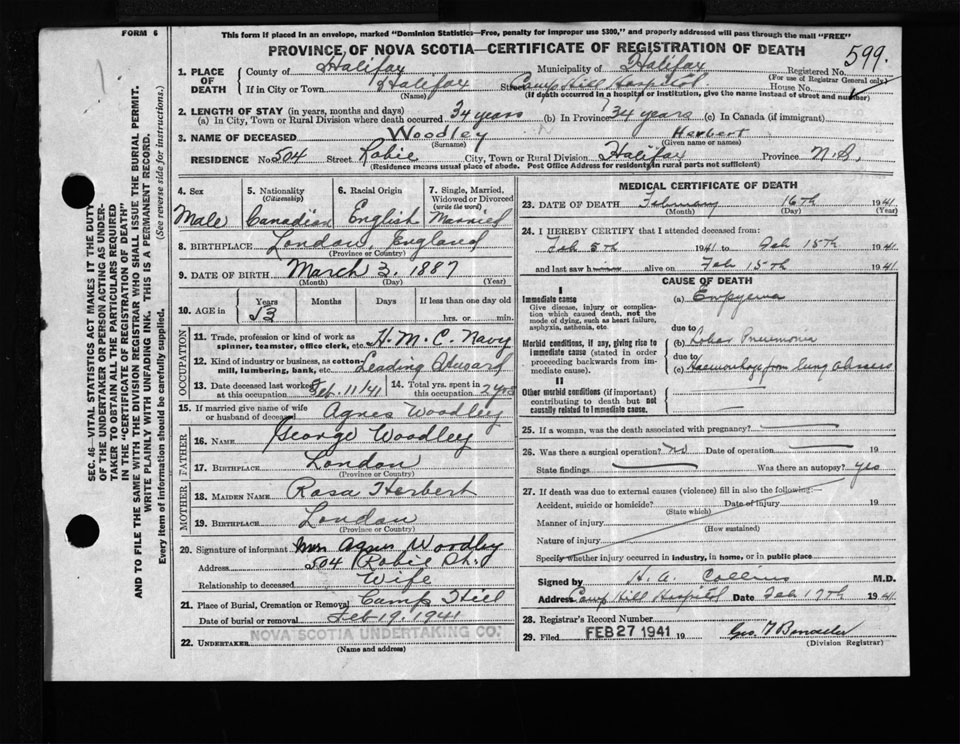 FORM 6
This form if placed in an envelope, marked "Dominion Statistics—Free, penalty for improper use $300," and properly addressed will pass through the mail "FREE"
PROVINCE OF NOVA SCOTIA—CERTIFICATE OF REGISTRATION OF DEATH
599.
1. PLACE OF DEATH
County of Halifax Municipality of Halifax Registered No.
(For use of Registrar General only)
If in City or Town Halifax Street Camp Hill Hospital House No.
(Name) (If death occurred in a hospital or institution, give the name instead of street and number)
2. LENGTH OF STAY (in years, months and days)
(a) In City, Town or Rural Division where death occurred 34 years (b) In Province 34 years (c) In Canada (if immigrant)
3. NAME OF DECEASED Woodley Herbert
(Surname) (Given name or names)
RESIDENCE No. 504 Street Robie City, Town or Rural Division Halifax Province N.S.
(Residence means usual place of abode. Post Office Address for residents in rural parts not sufficient)
4. Sex Male
5. Nationality (Citizenship) Canadian
6. Racial Origin English
7. Single, Married, Widowed or Divorced (write the word) Married
8. BIRTHPLACE London, England
(Province or Country)
9. DATE OF BIRTH March 3, 1887
(Month) (Day) (Year)
10. AGE in Years Months Days If less than one day old
53 hrs. or min.
OCCUPATION
11. Trade, profession or kind of work as spinner, teamster, office clerk, etc. H.M.C. Navy
12. Kind of industry or business, as cotton-mill, lumbering, bank, etc. Leading
13. Date deceased last worked at this occupation Feb. 11/41
14. Total yrs. spent in this occupation 2 yrs
15. If married give name of wife or husband of deceased Agnes Woodley
FATHER
16. NAME George Woodley
17. BIRTHPLACE London
(Province or Country)
MOTHER
18. MAIDEN NAME Rosa Herbert
19. BIRTHPLACE London
(Province or Country)
20. Signature of informant Mrs Agnes Woodley
Address 504 Robie St.
Relationship to deceased Wife
21. Place of Burial, Cremation or Removal Camp Hill
Date of burial or removal Feb 19. 1941
22. UNDERTAKER NOVA SCOTIA UNDERTAKING CO.
(Name and address)
MEDICAL CERTIFICATE OF DEATH
23. DATE OF DEATH February 16th 1941
(Month) (Day) (Year)
24. I HEREBY CERTIFY that I attended deceased from:
Feb 5th 1941 to Feb 15th 1941
and last saw him alive on Feb 15th 1941
CAUSE OF DEATH
I
Immediate cause (a) Empyema
Give disease, injury or complication which caused death, not the mode of dying, such as heart failure, asphyxia, asthenia, etc.
due to
Morbid conditions, if any, giving rise to immediate cause (stated in order proceeding backwards from immediate cause)
(b) Lobar Pneumonia
due to
(c) Haemorrhage from lung abscess
II
Other morbid conditions (if important) contributing to death but not causally related to immediate cause.
25. If a woman, was the death associated with pregnancy?
26. Was there a surgical operation? no Date of operation 19
State findings Was there an autopsy? yes
27. If death was due to external causes (violence) fill in also the following:—
Accident, suicide or homicide? Date of injury 19
(State which)
Manner of injury
(How sustained)
Nature of injury
Specify whether injury occurred in industry, in home, or in public place
Signed by H. A. Collins M.D.
Address Camp Hill Hospital Date Feb 17th 1941
28. Registrar's Record Number
29. Filed FEB 27 1941 19
(Division Registrar)
SEC. 46 VITAL STATISTICS ACT MAKES IT THE DUTY
OF THE UNDERTAKER OR PERSON ACTING AS UNDER-
TAKER TO OBTAIN ALL THE PARTICULARS REQUIRED
IN THE "CERTIFICATE OF REGISTRATION OF DEATH"
AND TO FILE THE SAME WITH THE DIVISION REGISTRAR WHO SHALL ISSUE THE BURIAL PERMIT.
WRITE PLAINLY WITH UNFADING INK. THIS IS A PERMANENT RECORD.
Every item of information should be carefully supplied. (See reverse side for instructions.)